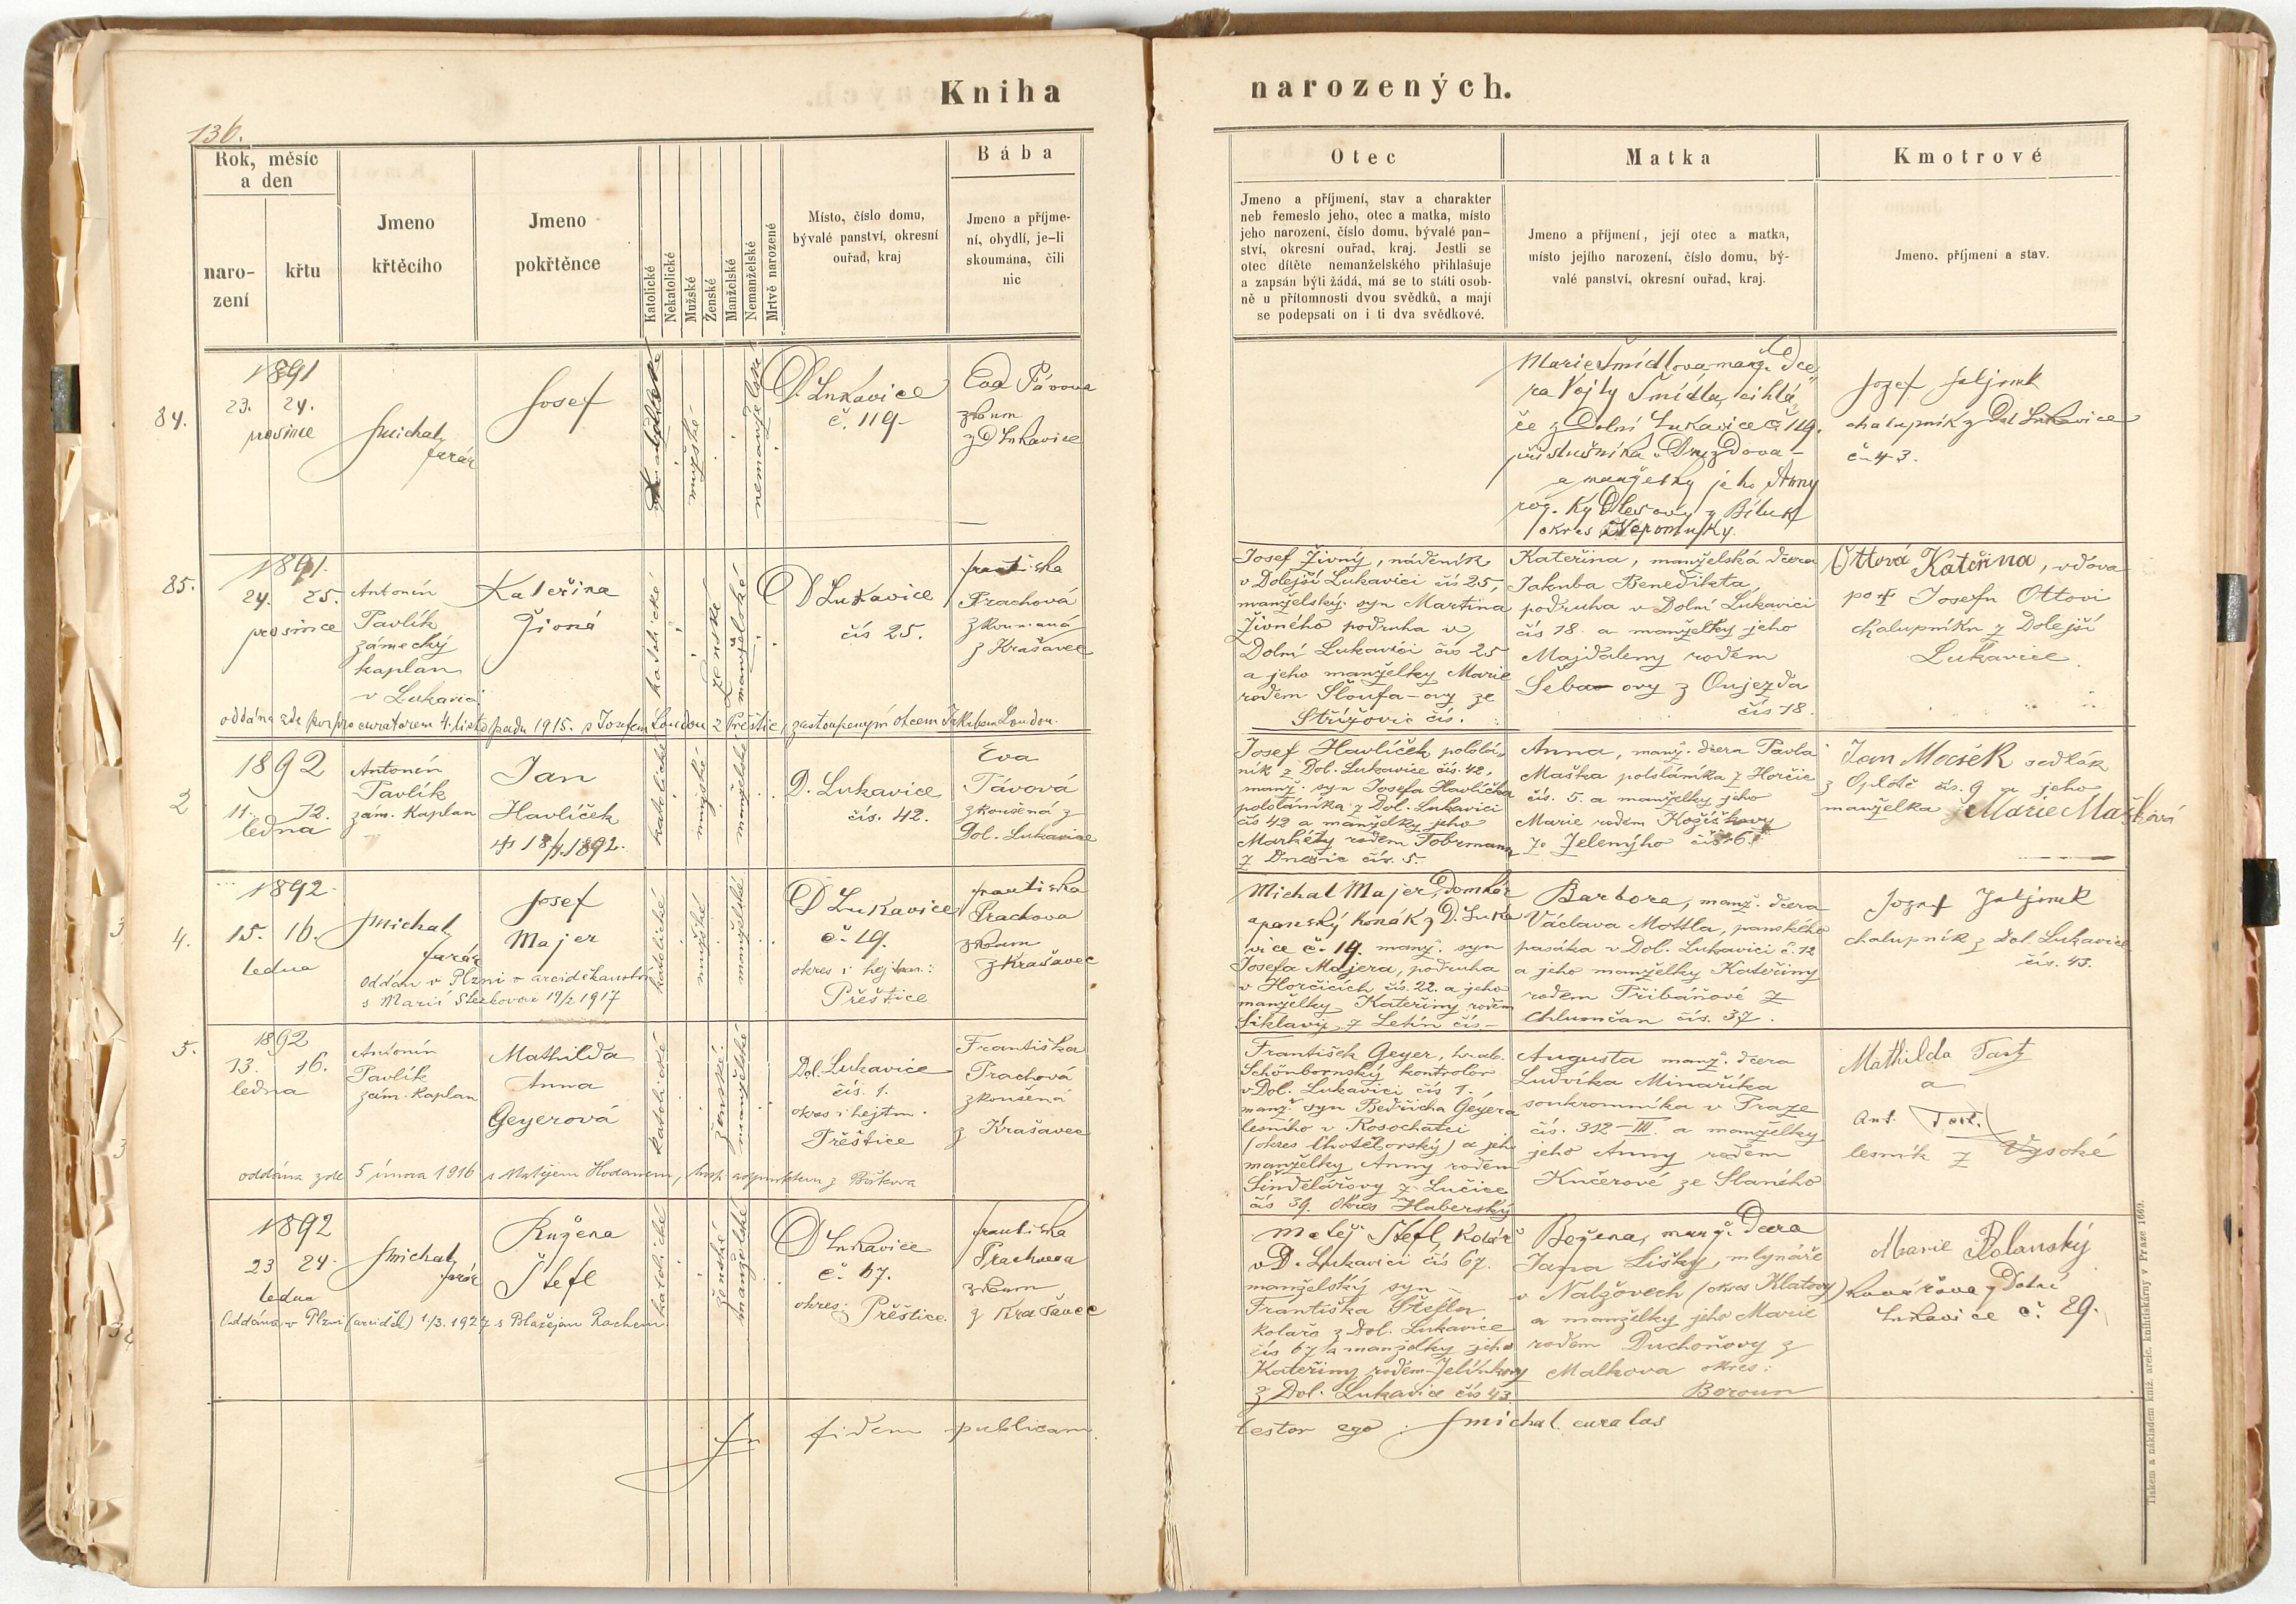 Kniha
narozených.
136.
Rok, měsíc
a den
naro-
zení
křtu
Jmeno
křtěcího
Jmeno
pokřtěnce
Katolické
Nekatolické
Mužské
Ženské
Manželské
Nemanželské
Mrtvě narozené
Místo, číslo domu,
bývalé panství, okresní
ouřad, kraj
Bába
Jmeno a příjme-
ní, obydlí, je-li
skoumána, čili
nic
Otec
Jmeno a příjmení, stav a charakter
neb řemeslo jeho, otec a matka, místo
jeho narození, číslo domu, bývalé pan-
ství, okresní ouřad, kraj. Jestli se
otec dítěte nemanželského přihlašuje
a zapsán býti žádá, má se to státi osob-
ně u přítomnosti dvou svědků, a mají
se podepsati on i ti dva svědkové.
Matka
Jmeno a příjmení, její otec a matka,
místo jejího narození, číslo domu, bý-
valé panství, okresní ouřad, kraj.
Kmotrové
Jmeno, příjmení a stav.
84.
1891
23. 24.
prosince
Smichal
farář
Josef
katolické
mužské
nemanželské
D. Lukavice
č. 119.
Eva Távova
zkoum
z D Lukavice
Marie Šmídlova manž. dce
ra Vojty Šmídla, cihlá
ře z Dolní Lukavice č. 119.
příslušníka Drzdova
a manželky jeho Anny
roz. Kydlesovy z Bíluk
okres Nepomuky.
Jozef Jeljnek
chalupník z Dol Lukavice
č. 43.
85.
1891.
24. 25.
prosince
Antonín
Pavlík
zámecký
kaplan
v Lukavici
Kateřina
Živná
katolické
ženské
manželské
D Lukavice
čís 25.
Františka
Prachová
zkoumaná
z Krašavec
Josef Živný, nádeník
v Dolejší Lukavici čís 25,
manželský syn Martina
Živného podruha v
Dolní Lukavici čís 25
a jeho manželky Marie
rodem Sloufa-ovy ze
Střížovic čís.
Kateřina, manželská dcera
Jakuba Benedikta,
podruha v Dolní Lukavici
čís 18. a manželky jeho
Majdaleny rodem
Šeba ovy z Oujezda
čís 18.
Ottová Kateřina, vdova
po † Josefu Ottovi
chalupníku z Dolejší
Lukavice.
oddána zde per procuratorem 4. listopadu 1915. s Josefem Loudou z Přeštic, zastoupeným otcem Jakubem Loudou.
2
1892
11. 12.
ledna
Antonín
Pavlík
zám. Kaplan
Jan
Havlíček
18/1 1892.
katolické
mužské
manželské
D. Lukavice
čís. 42.
Eva
Távová
zkoušená z
Dol. Lukavice
Josef Havlíček pololá-
ník z Dol. Lukavice čís. 42,
manž. syn Josefa Havlíčka
pololáníka z Dol. Lukavici
čís 42 a manželky jeho
Markéty rodem Tobrmann
z Dnešic čís. 5.
Anna, manž. dcera Pavla
Maška pololáníka z Horčic
čís. 5. a manželky jeho
Marie rodem Kožíškovy
ze Jelenýho čís 6.
Jan Mocsek sedlák
z Oplotě čís. 9 a jeho
manželka Marie Mašková
4.
1892
15. 16.
ledna
Smichal
farář
Josef
Majer
katolické
mužské
manželské
D Lukavice
č. 19.
okres i hejtm:
Přeštice
Františka
Prachova
zkoum
z Krašavec
Michal Majer, domkář
a panský konák z D. Luka
vice č. 19. manž. syn
Josefa Majera, podruha
v Horčicích čís. 22. a jeho
manželky Kateřiny rodem
Siklavy z Letin čís –
Barbora, manž. dcera
Václava Mottla, panského
pasáka v Dol. Lukavici č. 12
a jeho manželky Kateřiny
rodem Přibáňové z
Chlumčan čís. 37.
Jozef Jeljnek
chalupník z Dol. Lukavice
čís. 43.
Oddán v Plzni v arciděkanství
s Marií Stezkovou 19/2 1917
5.
1892
13. 16.
ledna
Antonín
Pavlík
zám. Kaplan
Mathilda
Anna
Geyerová
katolické
ženské
manželské
Dol. Lukavice
čís. 1.
okres i hejtm.
Přeštice
Františka
Prachová
zkoušená
z Krašavec
František Geyer, hrab.
Schönbornský kontrolor
v Dol. Lukavici čís 1.
manž. syn Bedřicha Geyera
lesního v Rosochatci
(okres Chotěborský) a jeho
manželky Anny rodem
Šindelářovy z Lučice
čís 39. okres Haberský
Augusta manž. dcera
Ludvíka Minaříka
soukromníka v Praze
čís. 312-III. a manželky
jeho Anny rodem
Kučerové ze Slaného
Mathilda Tart
a
Ant. Tart.
lesník z Vysoké
oddána zde 5 února 1916 s Matějem Hodanem, hosp. adjunktem z
1892
23 24.
ledna
Smichal
farář
Ružena
Štefl
katolické
ženské
manželské
D Lukavice
č. 67.
okres: Přeštice
Františka
Prachova
zkoum
z Krašavec
Matěj Štefl, kolář
v D. Lukavici čís 67.
manželský syn
Františka Štefla
koláře z Dol. Lukavice
čís 67 a manželky jeho
Kateřiny rodem Jelínkovy
z Dol. Lukavice čís 43
Božena, manž. dcera
Jana Lišky, mlynáře
v Nalžovech (okres Klatovy)
a manželky jeho Marie
rodem Duchoňovy z
Malkova okres:
Beroun
Marie Polanský
kovářova z Dolní
Lukavice č. 29.
Oddána v Plzni (arciděk) 1/3. 1927 s Blažejem Rachem
In fidem publicam
testor ego Smichal curatus
Tiskem a nákladem kníž. arcib. knihtiskárny v Praze 1669.